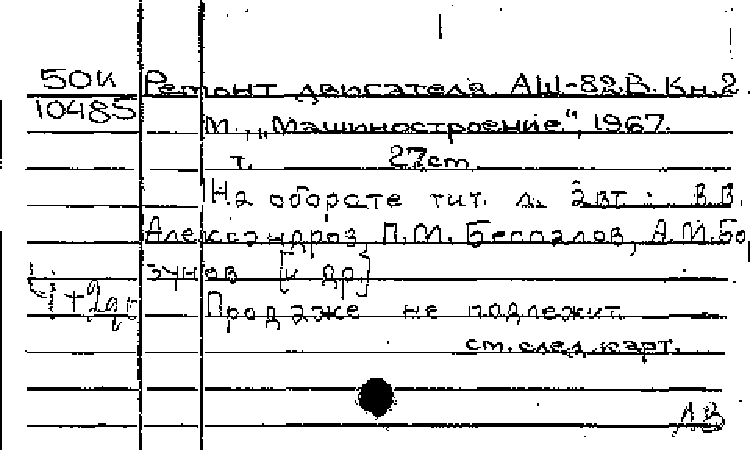 50К Ремонт двигателя АШ-82В. Кн.2
10485
М., „Машиностроение“, 1967.
т. 27см
На обороте тит. л. авт.: В.В.
Александров, П.М. Беспалов, А.М.Бор
зунов [и др]
Продаже не подлежит
см. след. карт.
АВ